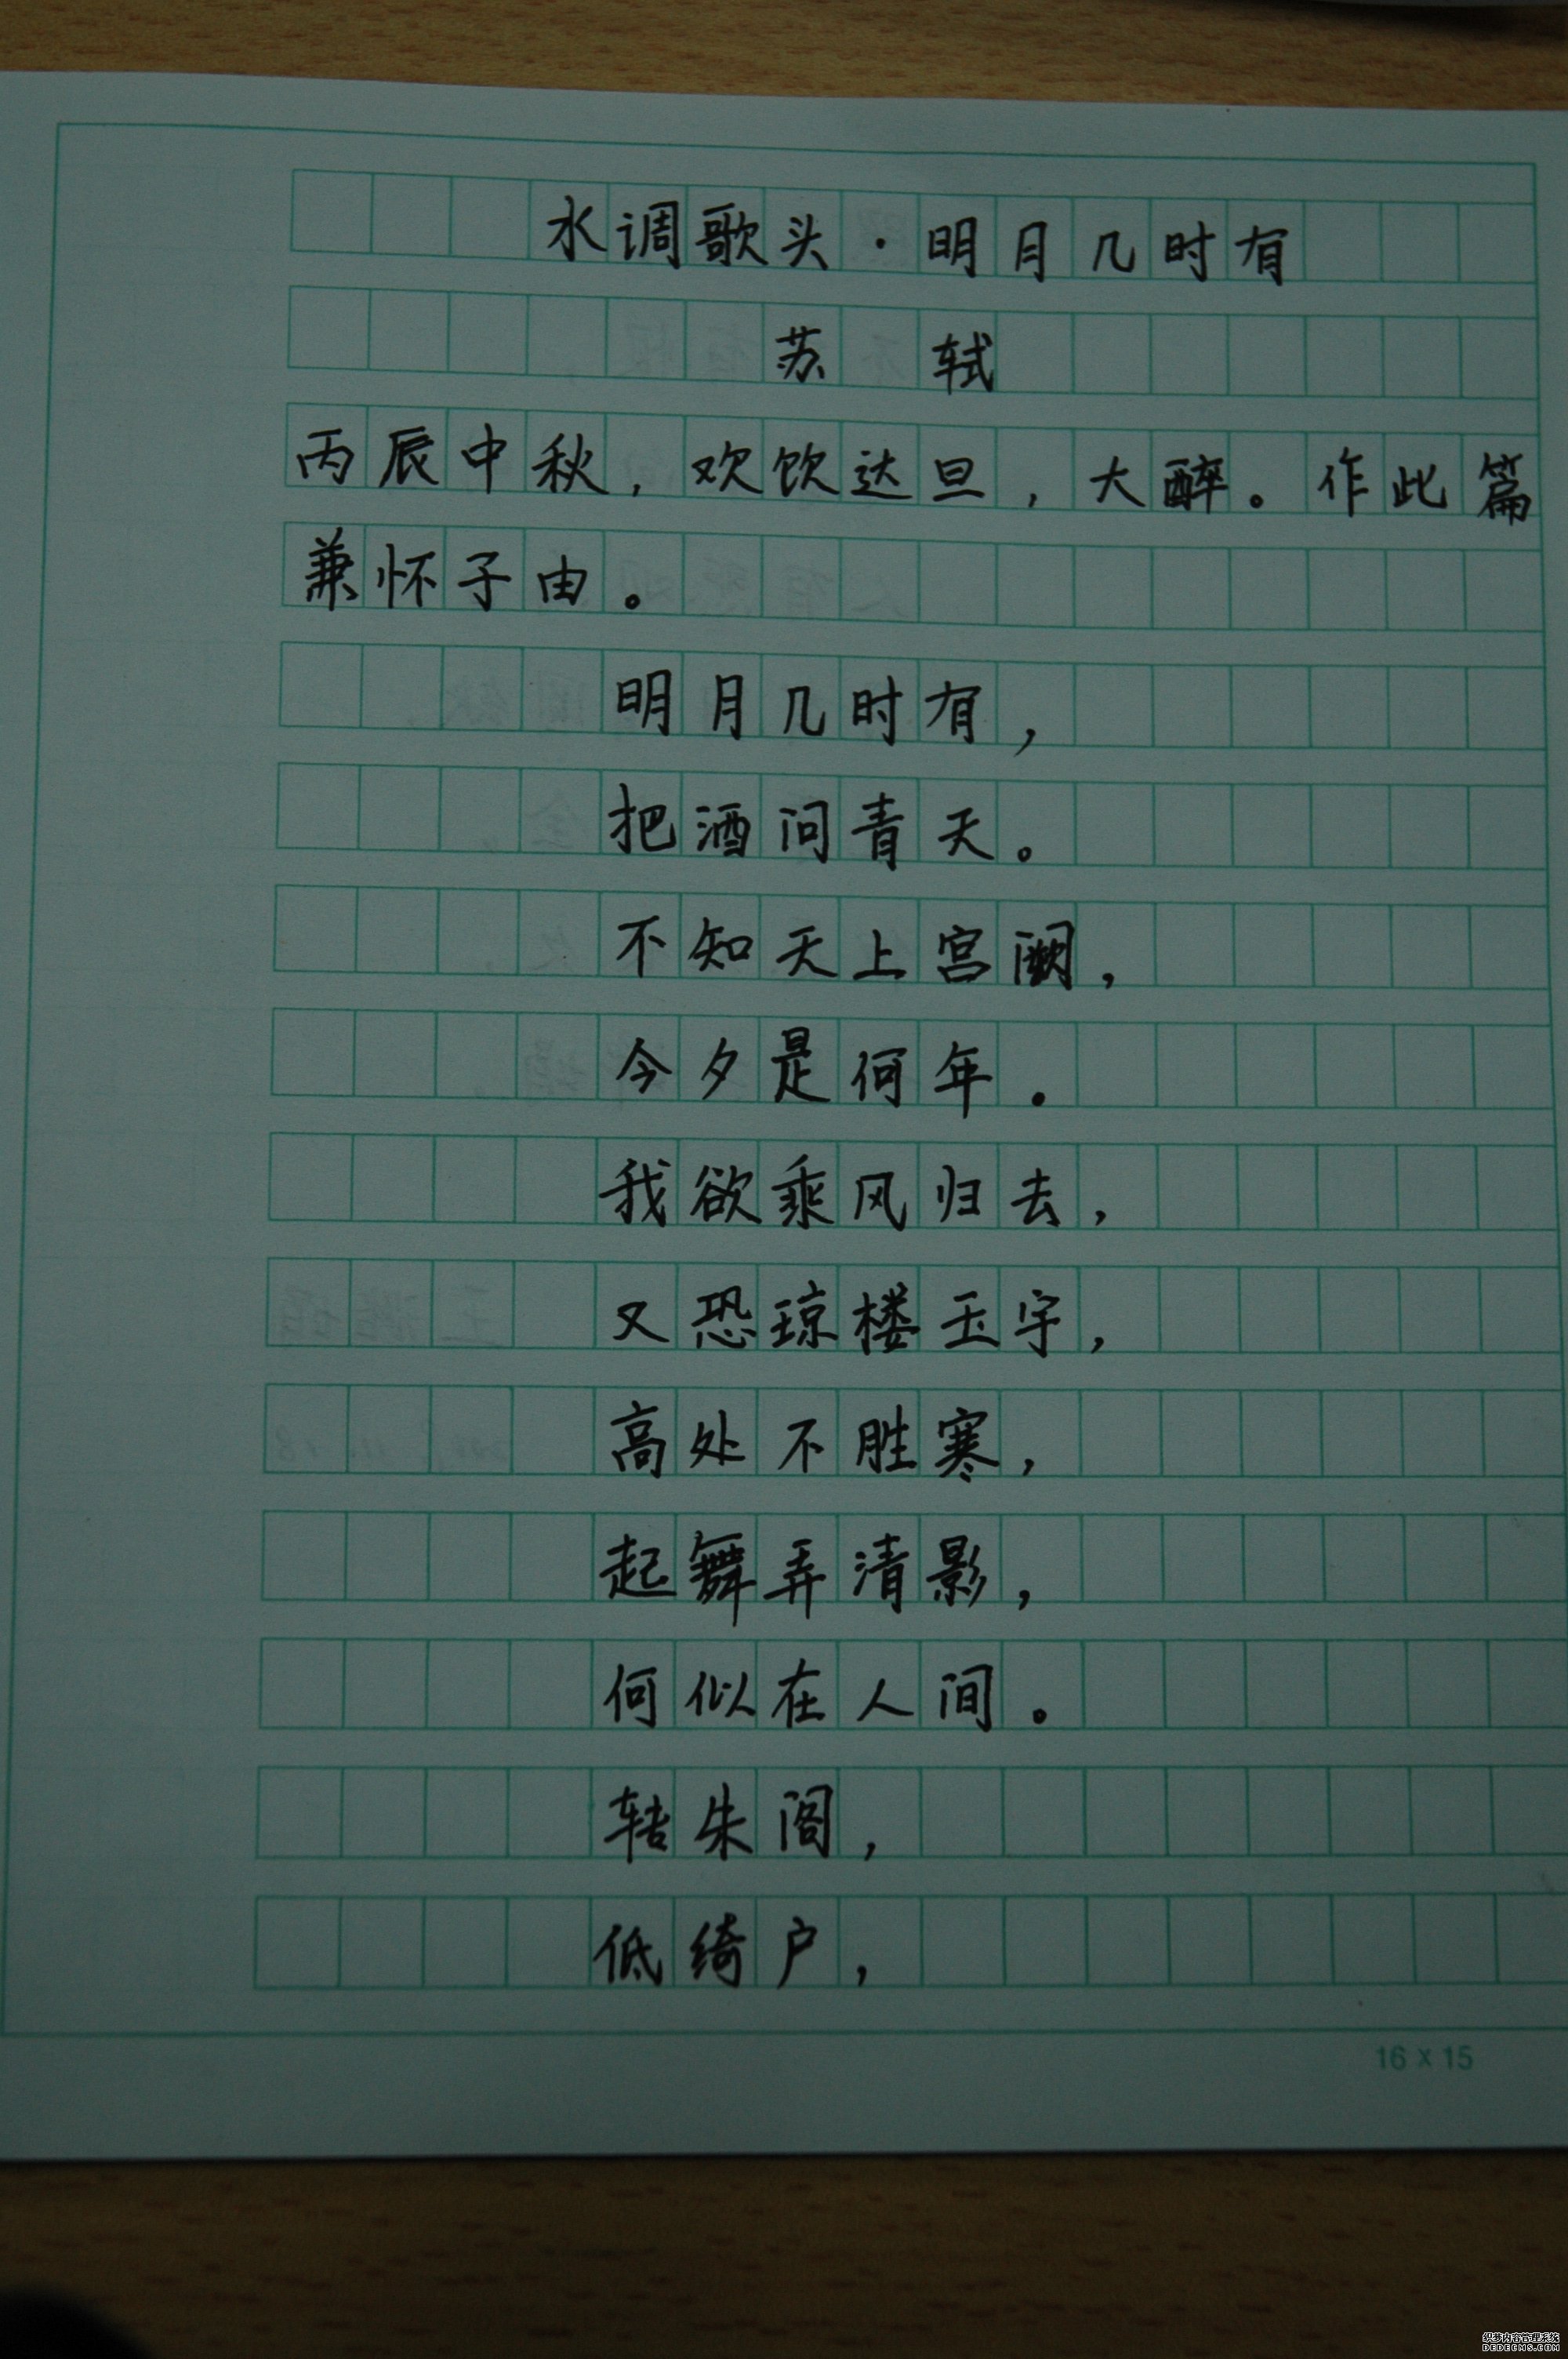 水调歌头·明月几时有
苏轼
丙辰中秋，欢饮达旦，大醉。作此篇
兼怀子由。
明月几时有，
把酒问青天。
不知天上宫阙，
今夕是何年。
我欲乘风归去，
又恐琼楼玉宇，
高处不胜寒，
起舞弄清影，
何似在人间。
转朱阁，
低绮户，
16×15
织梦内容管理系统
DEDECMS.COM